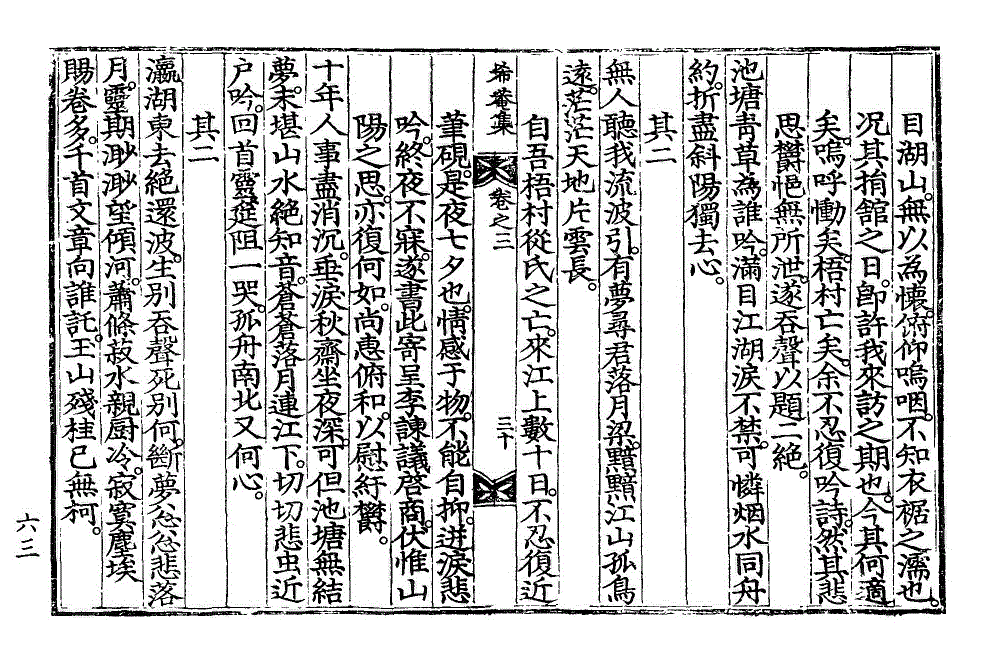 目湖山。無以爲懷。俯仰嗚咽。不知衣裾之濡也。
况其捐舘之日。卽許我來訪之期也。今其何適
矣。嗚呼慟矣。梧村亡矣。余不忍復吟詩。然其悲
思欝悒無所泄。遂吞聲以題二絶。
池塘靑草爲誰吟。滿目江湖淚不禁。可憐烟水同舟
約。折盡斜陽獨去心。
其二
無人聽我流波引。有夢尋君落月梁。黯黯江山孤鳥
遠。茫茫天地片雲長。
自吾梧村從氏之亡。來江上數十日。不忍復近
希菴集
卷之三
三十
筆硯。是夜七夕也。情感于物。不能自抑。迸淚悲
吟。終夜不寐。遂書此寄呈李諫議啓商。伏惟山
陽之思。亦復何如。尚惠俯和。以慰紆欝。
十年人事盡消沉。垂淚秋齋坐夜深。可但池塘無結
夢。未堪山水絶知音。蒼蒼落月連江下。切切悲虫近
户吟。回首靈筵阻一哭。孤舟南北又何心。
其二
瀛湖東去絶還波。生別吞聲死別何。斷夢忩忩悲落
月。靈期渺渺望傾河。蕭條菽水親厨冷。寂寞塵埃
賜卷多。千首文章向誰託。玉山殘桂已無柯。
六三